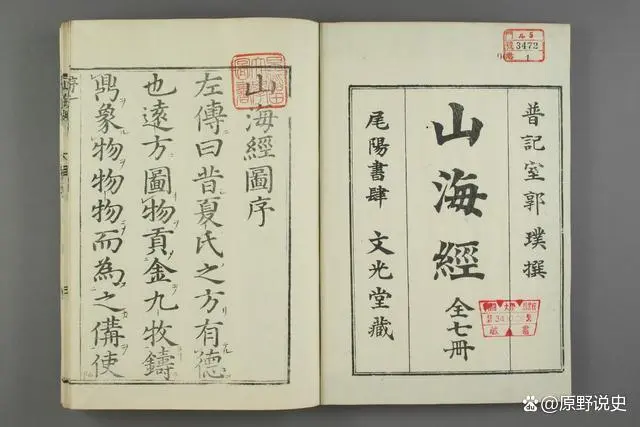 普記室郭璞撰
山海經
全七冊
尾陽書肆 文光堂藏
3472
1
山海經圖序
左傳曰昔夏氏之方有德
也遠方圖物貢金九牧鑄
鼎象物物物而為之備使
@原野说史